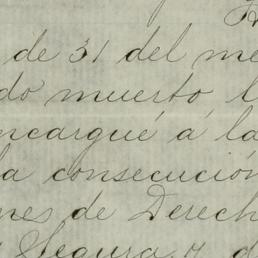 de 31 del me
do muerto, l
ncargué á la
la consecución
nes de Derech
Segura, y d